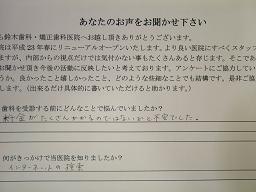 あなたのお声をお聞かせ下さい
も鈴木歯科・矯正歯科医院へお越し頂きありがとうございます。
院は平成23年春にリニューアルオープンいたします。より良い医院にすべくスタッフ
ますが、内部からの視点だけでは気付かない事もたくさんあると存じます。そこであ
お聞かせ頂き今後の活動に反映したいと考えております。アンケートにご協力してい
うか。良かったこと嬉しかったこと、どのような些細なことでも結構です。是非ご協
します。（出来るだけ具体的に書いていただけると助かります。）
歯科を受診する前にどんなことで悩んでいましたか？
料金がたくさんかかるのではないかと不安でした。
何がきっかけで当医院を知りましたか？
インターネットの検索